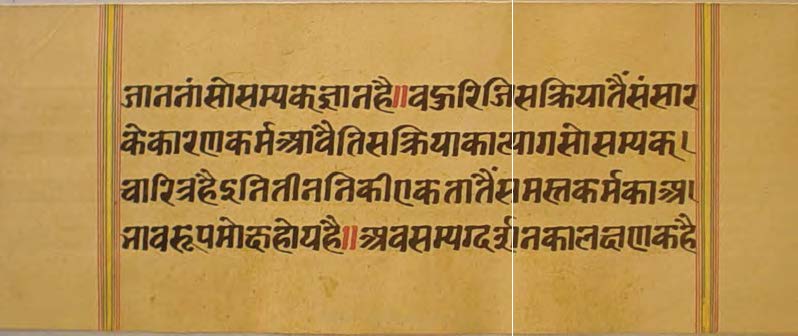 जाननांसोसम्यकज्ञानहै॥वहुरिजिसक्रियातैंसंसार
केकारणकर्मआंवैतिसक्रियाकात्यागसोसम्यक्।
चारित्रहैइनितीननिकीएकतांतैंसमस्तकर्मकाअ।
भावरूपमोक्षहोयहै॥अवसम्यग्दर्शनकालक्षणकहै